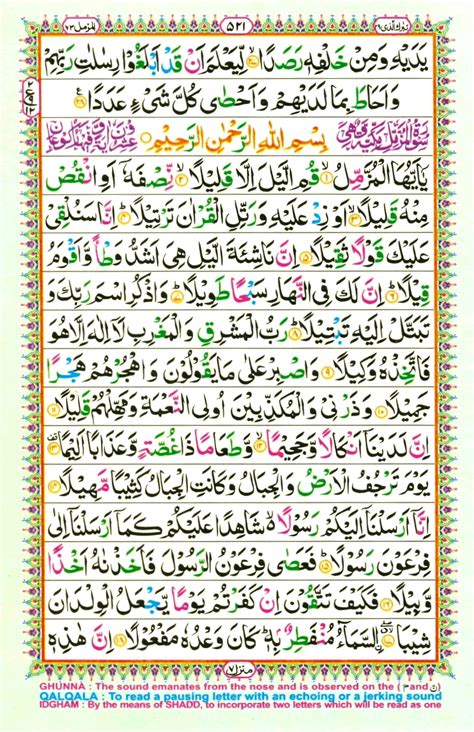 تبٰرك الذی ٢٩ ٥٢١ المزمل ٧٣
يَدَيْهِ وَمِنْ خَلْفِهٖ رَصَدًا ۙ‏﴿۲۷﴾ لِّيَعْلَمَ اَنْ قَدْ اَبْلَغُوْا رِسٰلٰتِ رَبِّهِمْ
وَاَحَاطَ بِمَا لَدَيْهِمْ وَاَحْصٰى كُلَّ شَىْءٍ عَدَدًا ﴿۲۸﴾
بِسْمِ اللّٰهِ الرَّحْمٰنِ الرَّحِيْمِ
يٰۤاَيُّهَا الْمُزَّمِّلُ ﴿۱﴾ قُمِ الَّيْلَ اِلَّا قَلِيْلًا ﴿۲﴾ نِّصْفَهٗۤ اَوِ انْقُصْ
مِنْهُ قَلِيْلًا ﴿۳﴾ اَوْ زِدْ عَلَيْهِ وَرَتِّلِ الْقُرْاٰنَ تَرْتِيْلًا ﴿۴﴾ اِنَّا سَنُلْقِىْ
عَلَيْكَ قَوْلًا ثَقِيْلًا ﴿۵﴾ اِنَّ نَاشِئَةَ الَّيْلِ هِىَ اَشَدُّ وَطْاً وَّاَقْوَمُ
قِيْلًا ﴿۶﴾ اِنَّ لَكَ فِى النَّهَارِ سَبْحًا طَوِيْلًا ﴿۷﴾ وَاذْكُرِ اسْمَ رَبِّكَ وَ
تَبَتَّلْ اِلَيْهِ تَبْتِيْلًا ﴿۸﴾ رَبُّ الْمَشْرِقِ وَالْمَغْرِبِ لَاۤ اِلٰهَ اِلَّا هُوَ
فَاتَّخِذْهُ وَكِيْلًا ﴿۹﴾ وَاصْبِرْ عَلٰى مَا يَقُوْلُوْنَ وَاهْجُرْهُمْ هَجْرًا
جَمِيْلًا ﴿۱۰﴾ وَذَرْنِىْ وَالْمُكَذِّبِيْنَ اُولِى النَّعْمَةِ وَمَهِّلْهُمْ قَلِيْلًا ﴿۱۱﴾
اِنَّ لَدَيْنَاۤ اَنْكَالًا وَّجَحِيْمًا ﴿۱۲﴾ وَّطَعَامًا ذَا غُصَّةٍ وَّعَذَابًا اَلِيْمًا ﴿۱۳﴾
يَوْمَ تَرْجُفُ الْاَرْضُ وَالْجِبَالُ وَكَانَتِ الْجِبَالُ كَثِيْبًا مَّهِيْلًا ﴿۱۴﴾
اِنَّاۤ اَرْسَلْنَاۤ اِلَيْكُمْ رَسُوْلًا شَاهِدًا عَلَيْكُمْ كَمَاۤ اَرْسَلْنَاۤ اِلٰى
فِرْعَوْنَ رَسُوْلًا ﴿۱۵﴾ فَعَصٰى فِرْعَوْنُ الرَّسُوْلَ فَاَخَذْنٰهُ اَخْذًا
وَّبِيْلًا ﴿۱۶﴾ فَكَيْفَ تَتَّقُوْنَ اِنْ كَفَرْتُمْ يَوْمًا يَّجْعَلُ الْوِلْدَانَ
شِيْبًا ﴿۱۷﴾ السَّمَآءُ مُنْفَطِرٌۢ بِهٖ كَانَ وَعْدُهٗ مَفْعُوْلًا ﴿۱۸﴾ اِنَّ هٰذِهٖ
منزل ٧
GHUNNA : The sound emanates from the nose and is observed on the (ن and م)
QALQALA : To read a pausing letter with an echoing or a jerking sound
IDGHAM : By the means of SHADD, to incorporate two letters which will be read as one